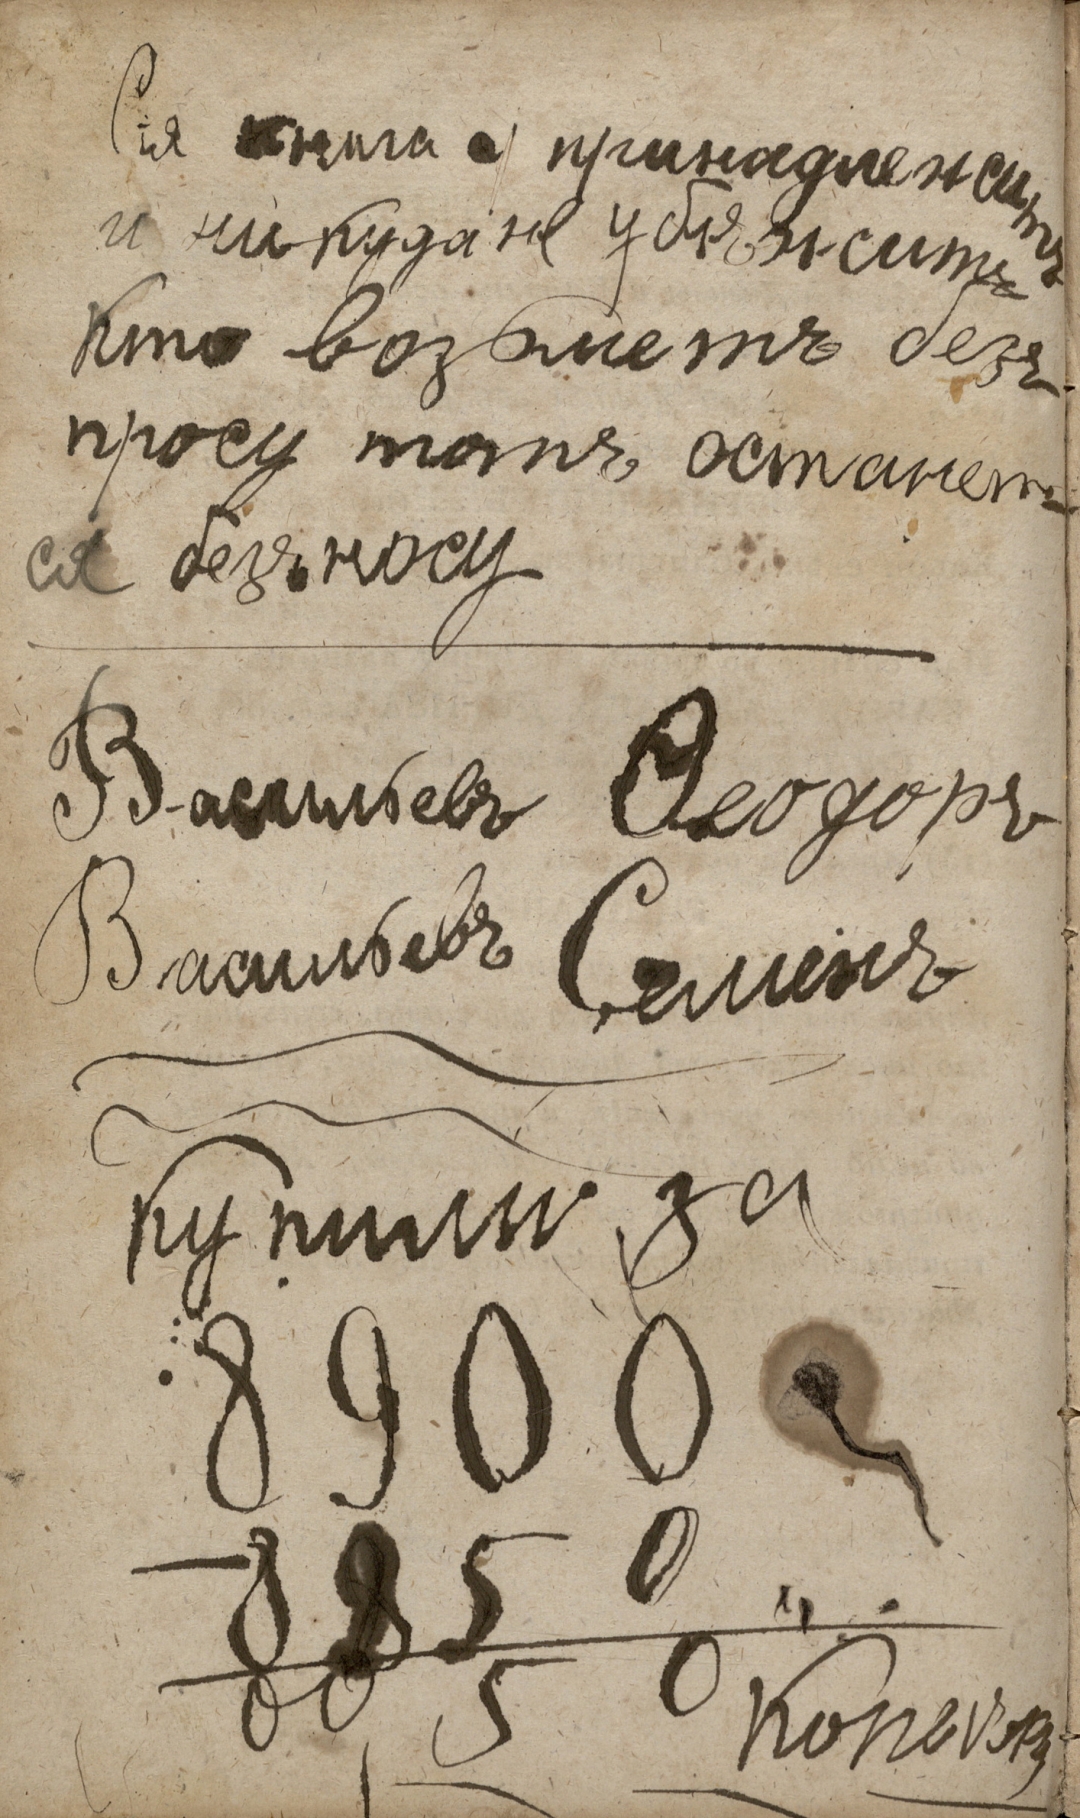 Сія книга принадлежитъ
и никуда не убѣжитъ
Кто возметъ безъ
просу тотъ останет-
ся безъ носу
Васильевъ Ѳеодоръ
Васильевъ Семенъ
Купили за
8900
— 8850
0050 Копѣекъ